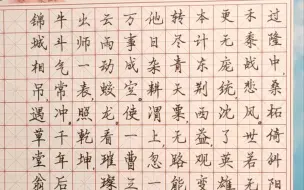 过隆中桑柘倚斜阳
禾黍战悲风世若无
更无庞统沈了英雄
本计东荆西益观变
转尽青天粟无路能
他日杂耕渭上忽一
万事成空使一曹三
云雨动蛟龙看璀璨
出师一表照乾坤
牛斗气常冲千年后
锦城相吊遇草堂翁